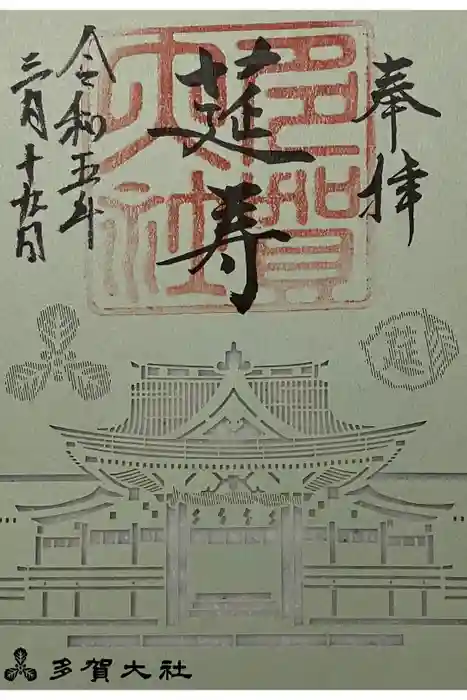 奉拝
多賀
大社
莚寿
令和五年
三月十九日
莚
多賀大社